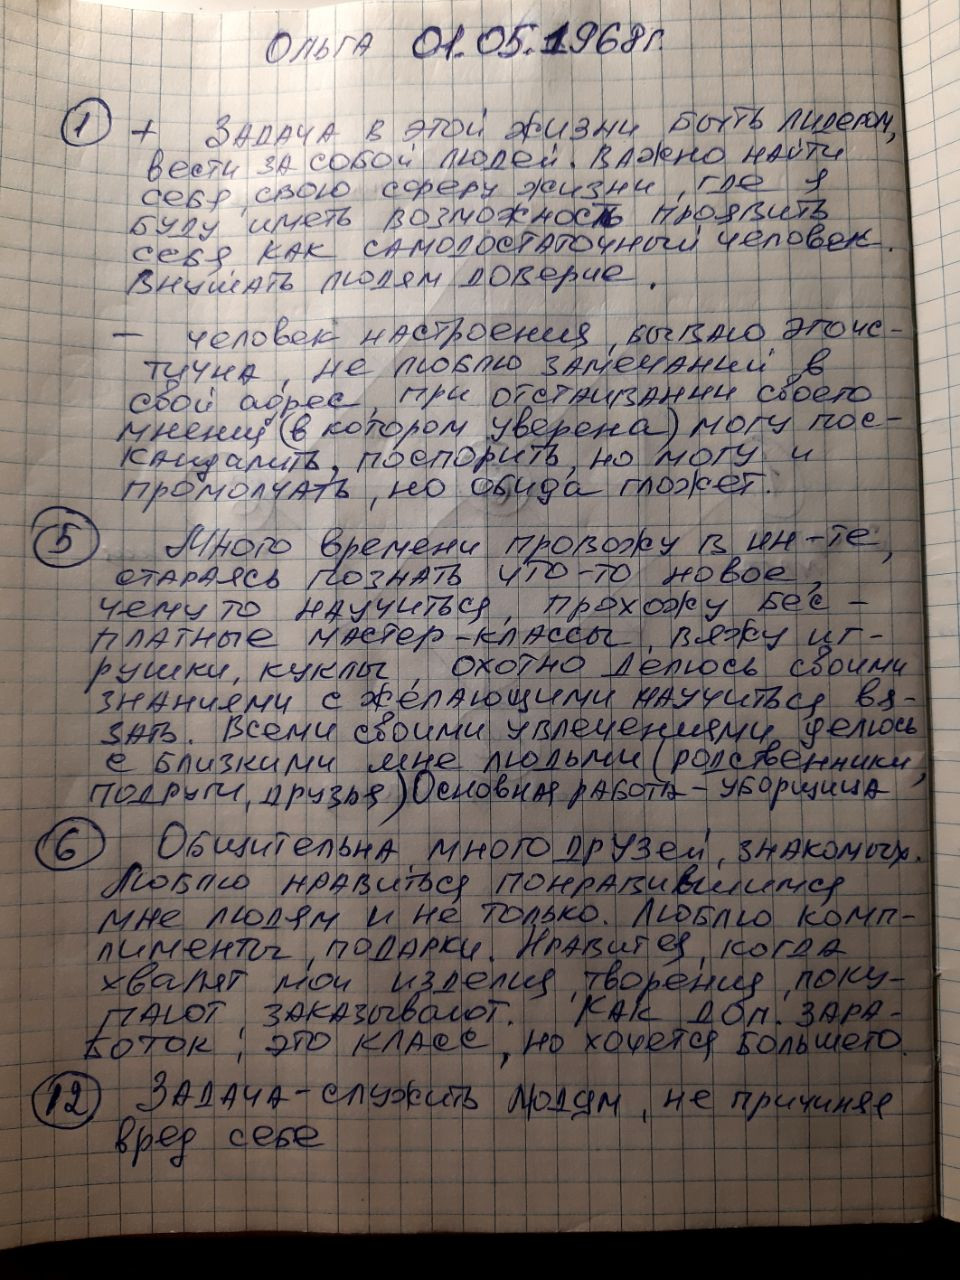 Ольга 01.05.1968г.
1 + Задача в этой жизни быть лидером,
вести за собой людей. Важно найти
себя, свою сферу жизни, где я
буду иметь возможность проявить
себя как самодостаточный человек.
Внушать людям доверие.
— человек настроения, бываю эгоис-
тична, не люблю замечаний в
свой адрес, при отстаивании своего
мнения (в котором уверена) могу пос-
кандалить, поспорить, но могу и
промолчать, но обида гложет.
5 Много времени провожу в ин-те,
стараясь познать что-то новое,
чему то научиться, прохожу бес-
платные мастер-классы, вяжу иг-
рушки, куклы, охотно делюсь своими
знаниями с желающими научиться вя-
зать. Всеми своими увлечениями делюсь
с близкими мне людьми (родственники,
подруги, друзья) Основная работа - уборщица
6 Общительна, много друзей, знакомых.
Люблю нравиться понравившимся
мне людям и не только. Люблю комп-
лименты, подарки. Нравится, когда
хвалят мои изделия, творения, поку-
пают, заказывают. Как доп. зара-
боток, это класс, но хочется большего.
12 Задача - служить людям, не причиняя
вред себе